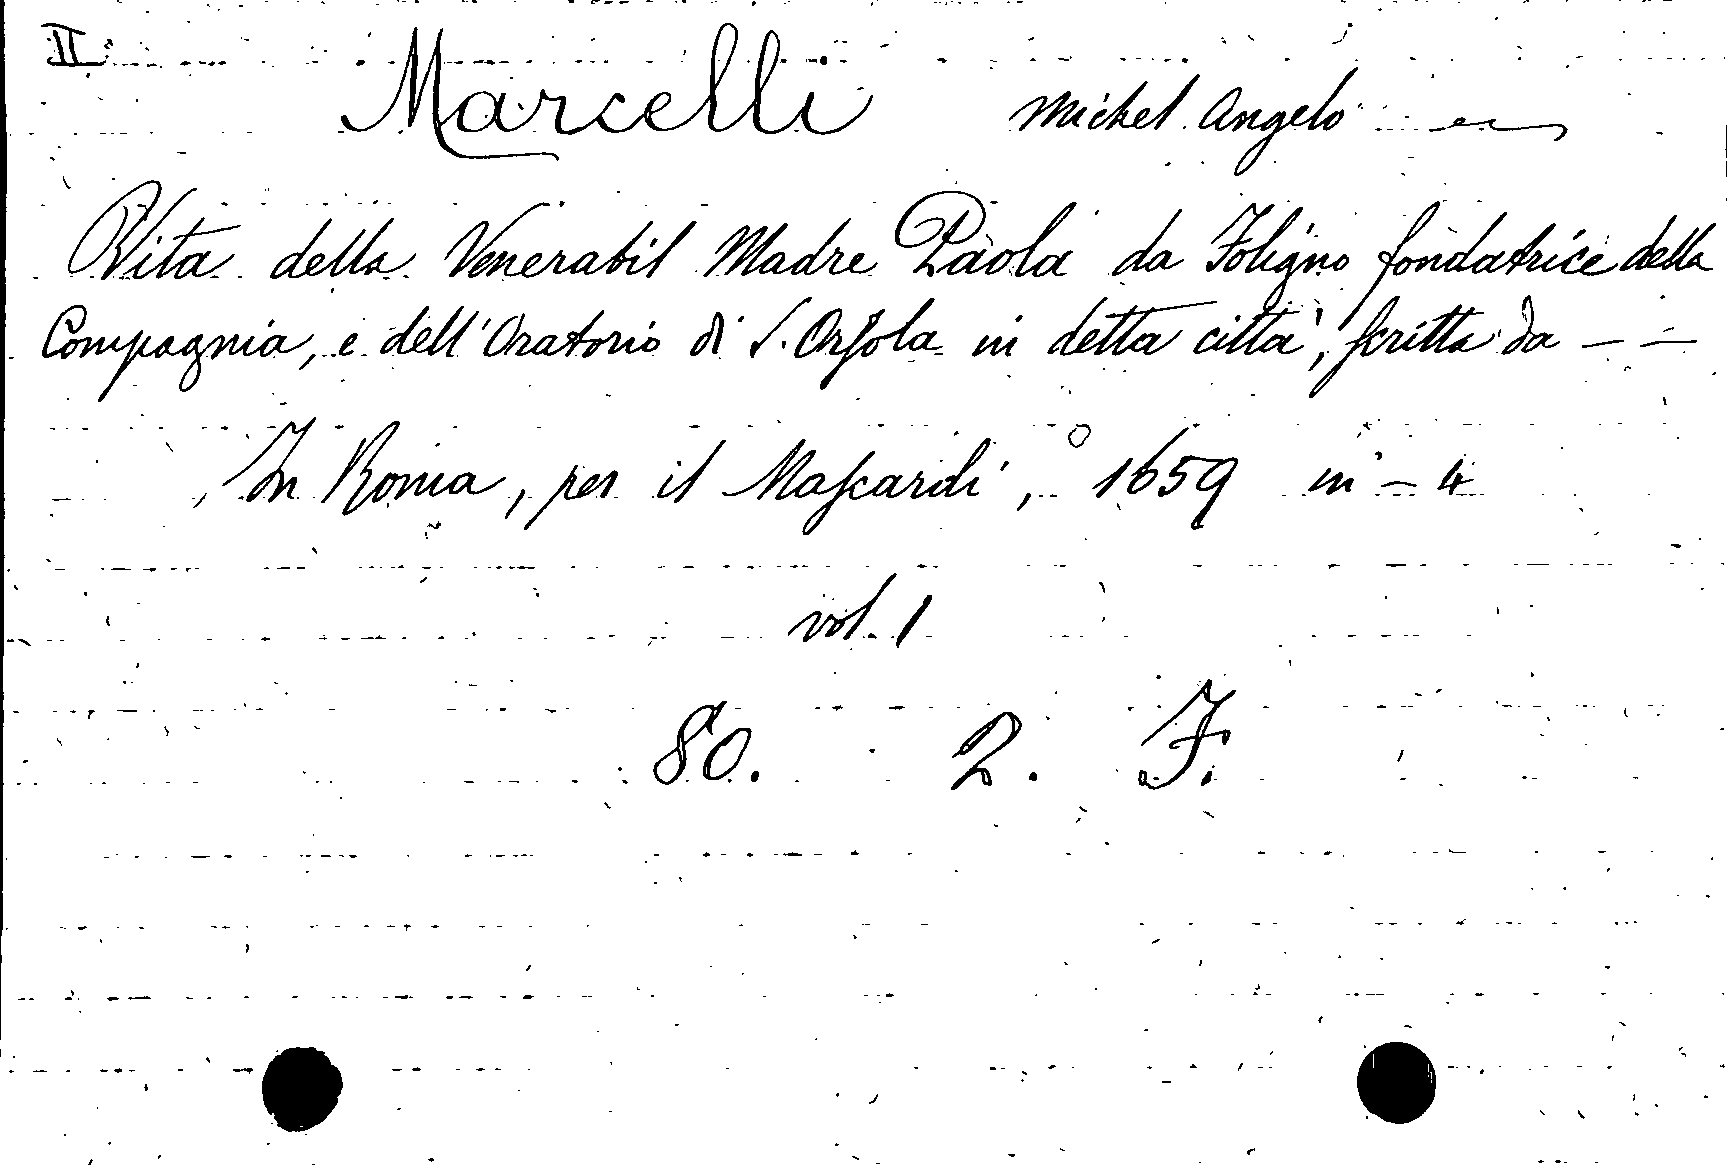 II
Marcelli Michel Angelo
Vita della Venerabil Madre Paola da Foligno fondatrice della
Compagnia, e dell'Oratorio di S. Orsola in detta città, scritta da — —
In Roma, per il Mascardi, 1659 in - 4°
vol. 1
80. 2. F.